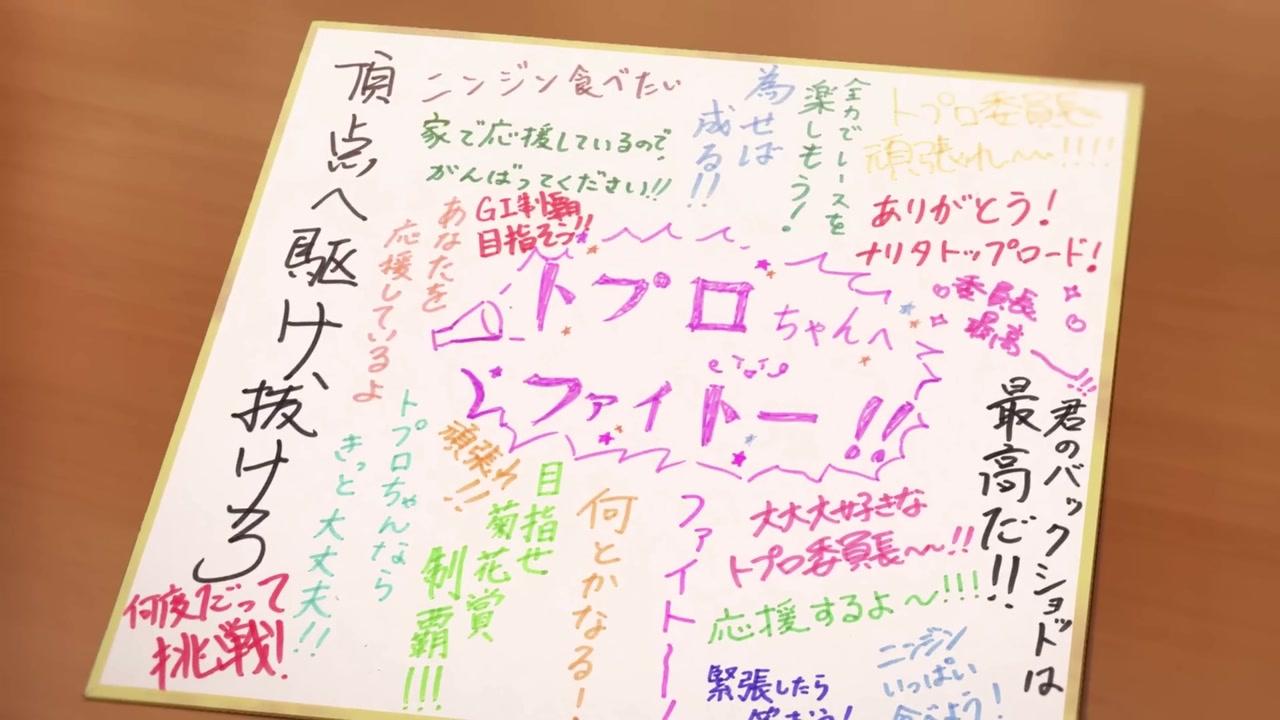 頂点へ駆け、抜けろ
ニンジン食べたい
家で応援しているので、
がんばってください!!
為せば
成る!!
全力でレースを
楽しもう!
トプロ委員長
頑張れ〜!!!!
ありがとう!
ナリタトップロード!
GI制覇
目指そう!!
あなたを
応援しているよ
トプロちゃんへ
ファイトー!!
委員長
最高〜!!!
君のバックショットは
最高だ!!
トプロちゃんなら
きっと大丈夫!!
頑張れ!!
目指せ
菊花賞
制覇!!!
何とかなるー!
ファイト〜!
大大大好きな
トプロ委員長〜!!
応援するよ〜!!!
何度だって
挑戦!
緊張したら
笑おう!
ニンジン
いっぱい
食べよう!